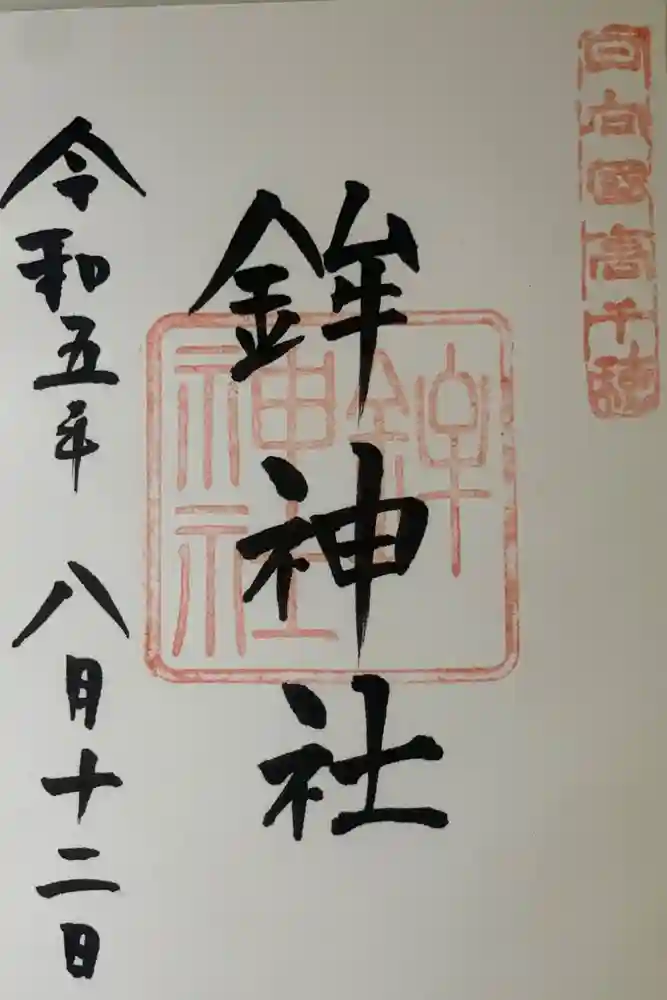 日向國高千穂
鉾神社
鉾
神社
令和五年 八月十二日